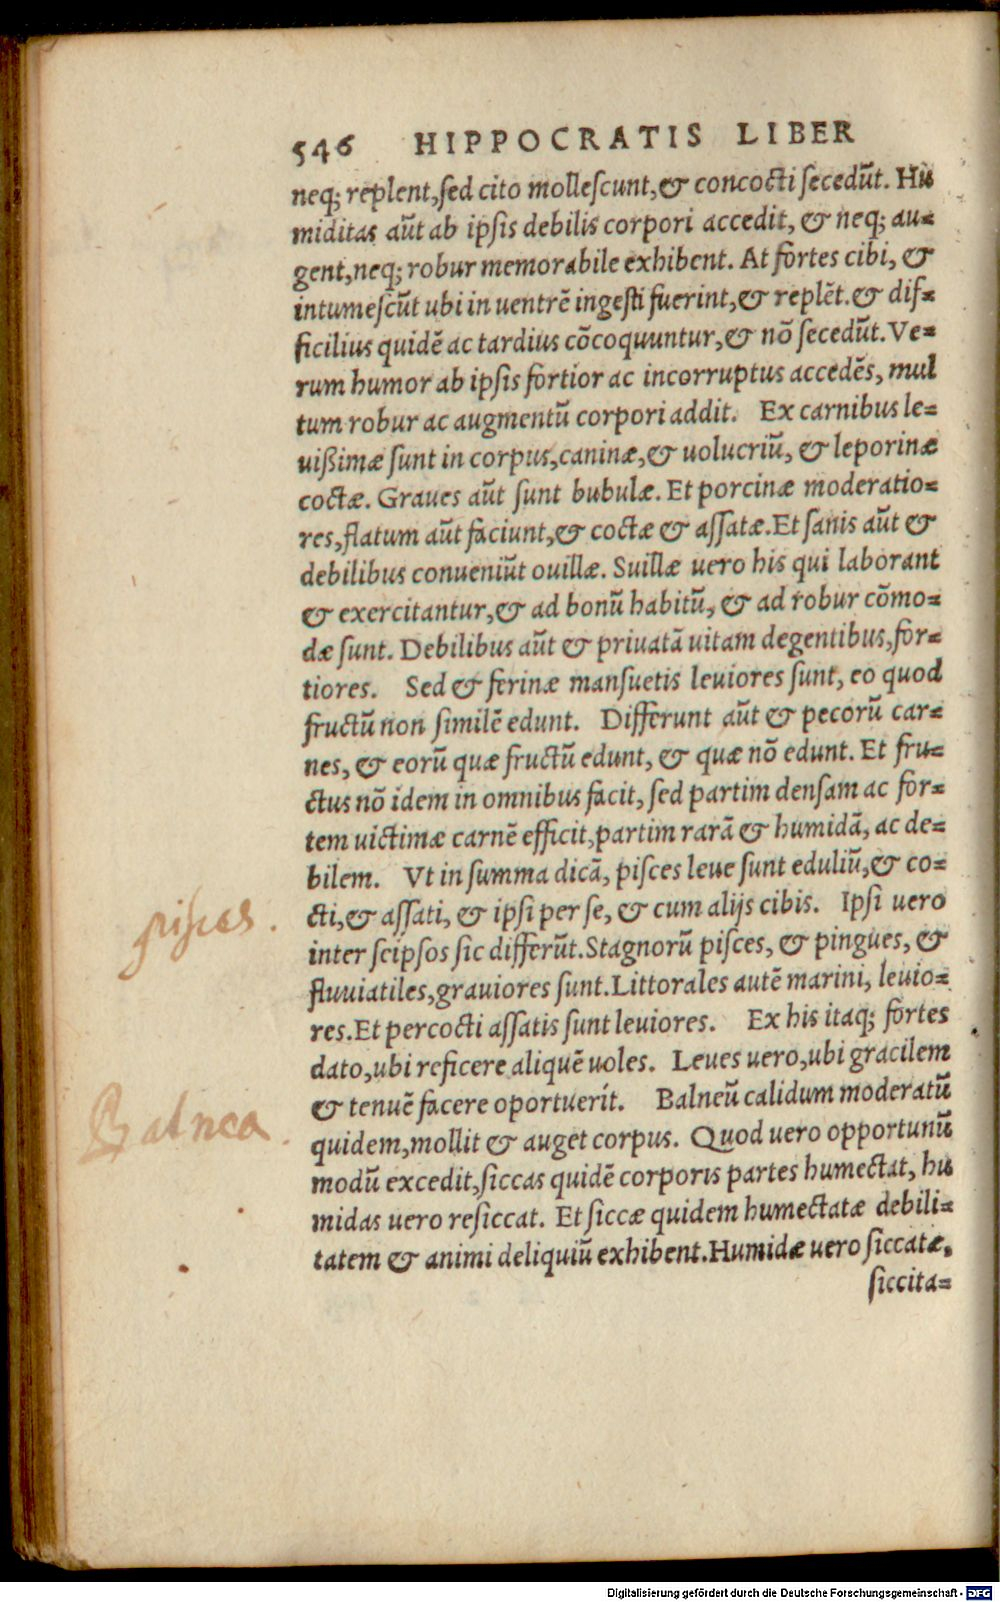 546 HIPPOCRATIS LIBER
neq; replent, sed cito mollescunt, & concocti secedũt. Hu
miditas aũt ab ipsis debilis corpori accedit, & neq; au=
gent, neq; robur memorabile exhibent. At fortes cibi, &
intumescũt ubi in uentrẽ ingesti fuerint, & replẽt. & dif=
ficilius quidẽ ac tardius cõcoquuntur, & nõ secedũt. Ve=
rum humor ab ipsis fortior ac incorruptus accedẽs, mul
tum robur ac augmentũ corpori addit. Ex carnibus le=
uißimæ sunt in corpus, caninæ, & uolucriũ, & leporinæ
coctæ. Graues aũt sunt bubulæ. Et porcinæ moderatio=
res, flatum aũt faciunt, & coctæ & assatæ. Et sanis aũt &
debilibus conueniũt ouillæ. Suillæ uero his qui laborant
& exercitantur, & ad bonũ habitũ, & ad robur cõmo=
dæ sunt. Debilibus aũt & priuatã uitam degentibus, for=
tiores. Sed & ferinæ mansuetis leuiores sunt, eo quod
fructũ non similẽ edunt. Differunt aũt & pecorũ car=
nes, & eorũ quæ fructũ edunt, & quæ nõ edunt. Et fru=
ctus nõ idem in omnibus facit, sed partim densam ac for=
tem uictimæ carnẽ efficit, partim rarã & humidã, ac de=
bilem. Vt in summa dicã, pisces leue sunt eduliũ, & co=
cti, & assati, & ipsi per se, & cum alijs cibis. Ipsi uero
pisces.
inter seipsos sic differũt. Stagnorũ pisces, & pingues, &
fluuiatiles, grauiores sunt. Littorales autẽ marini, leuio=
res. Et percocti assatis sunt leuiores. Ex his itaq; fortes
dato, ubi reficere aliquẽ uoles. Leues uero, ubi gracilem
& tenuẽ facere oportuerit. Balneũ calidum moderatũ
Balnea.
quidem, mollit & auget corpus. Quod uero opportunũ
modũ excedit, siccas quidẽ corporis partes humectat, hu
midas uero resiccat. Et siccæ quidem humectatæ debili=
tatem & animi deliquiũ exhibent. Humidæ uero siccatæ,
siccita=
Digitalisierung gefördert durch die Deutsche Forschungsgemeinschaft - DFG